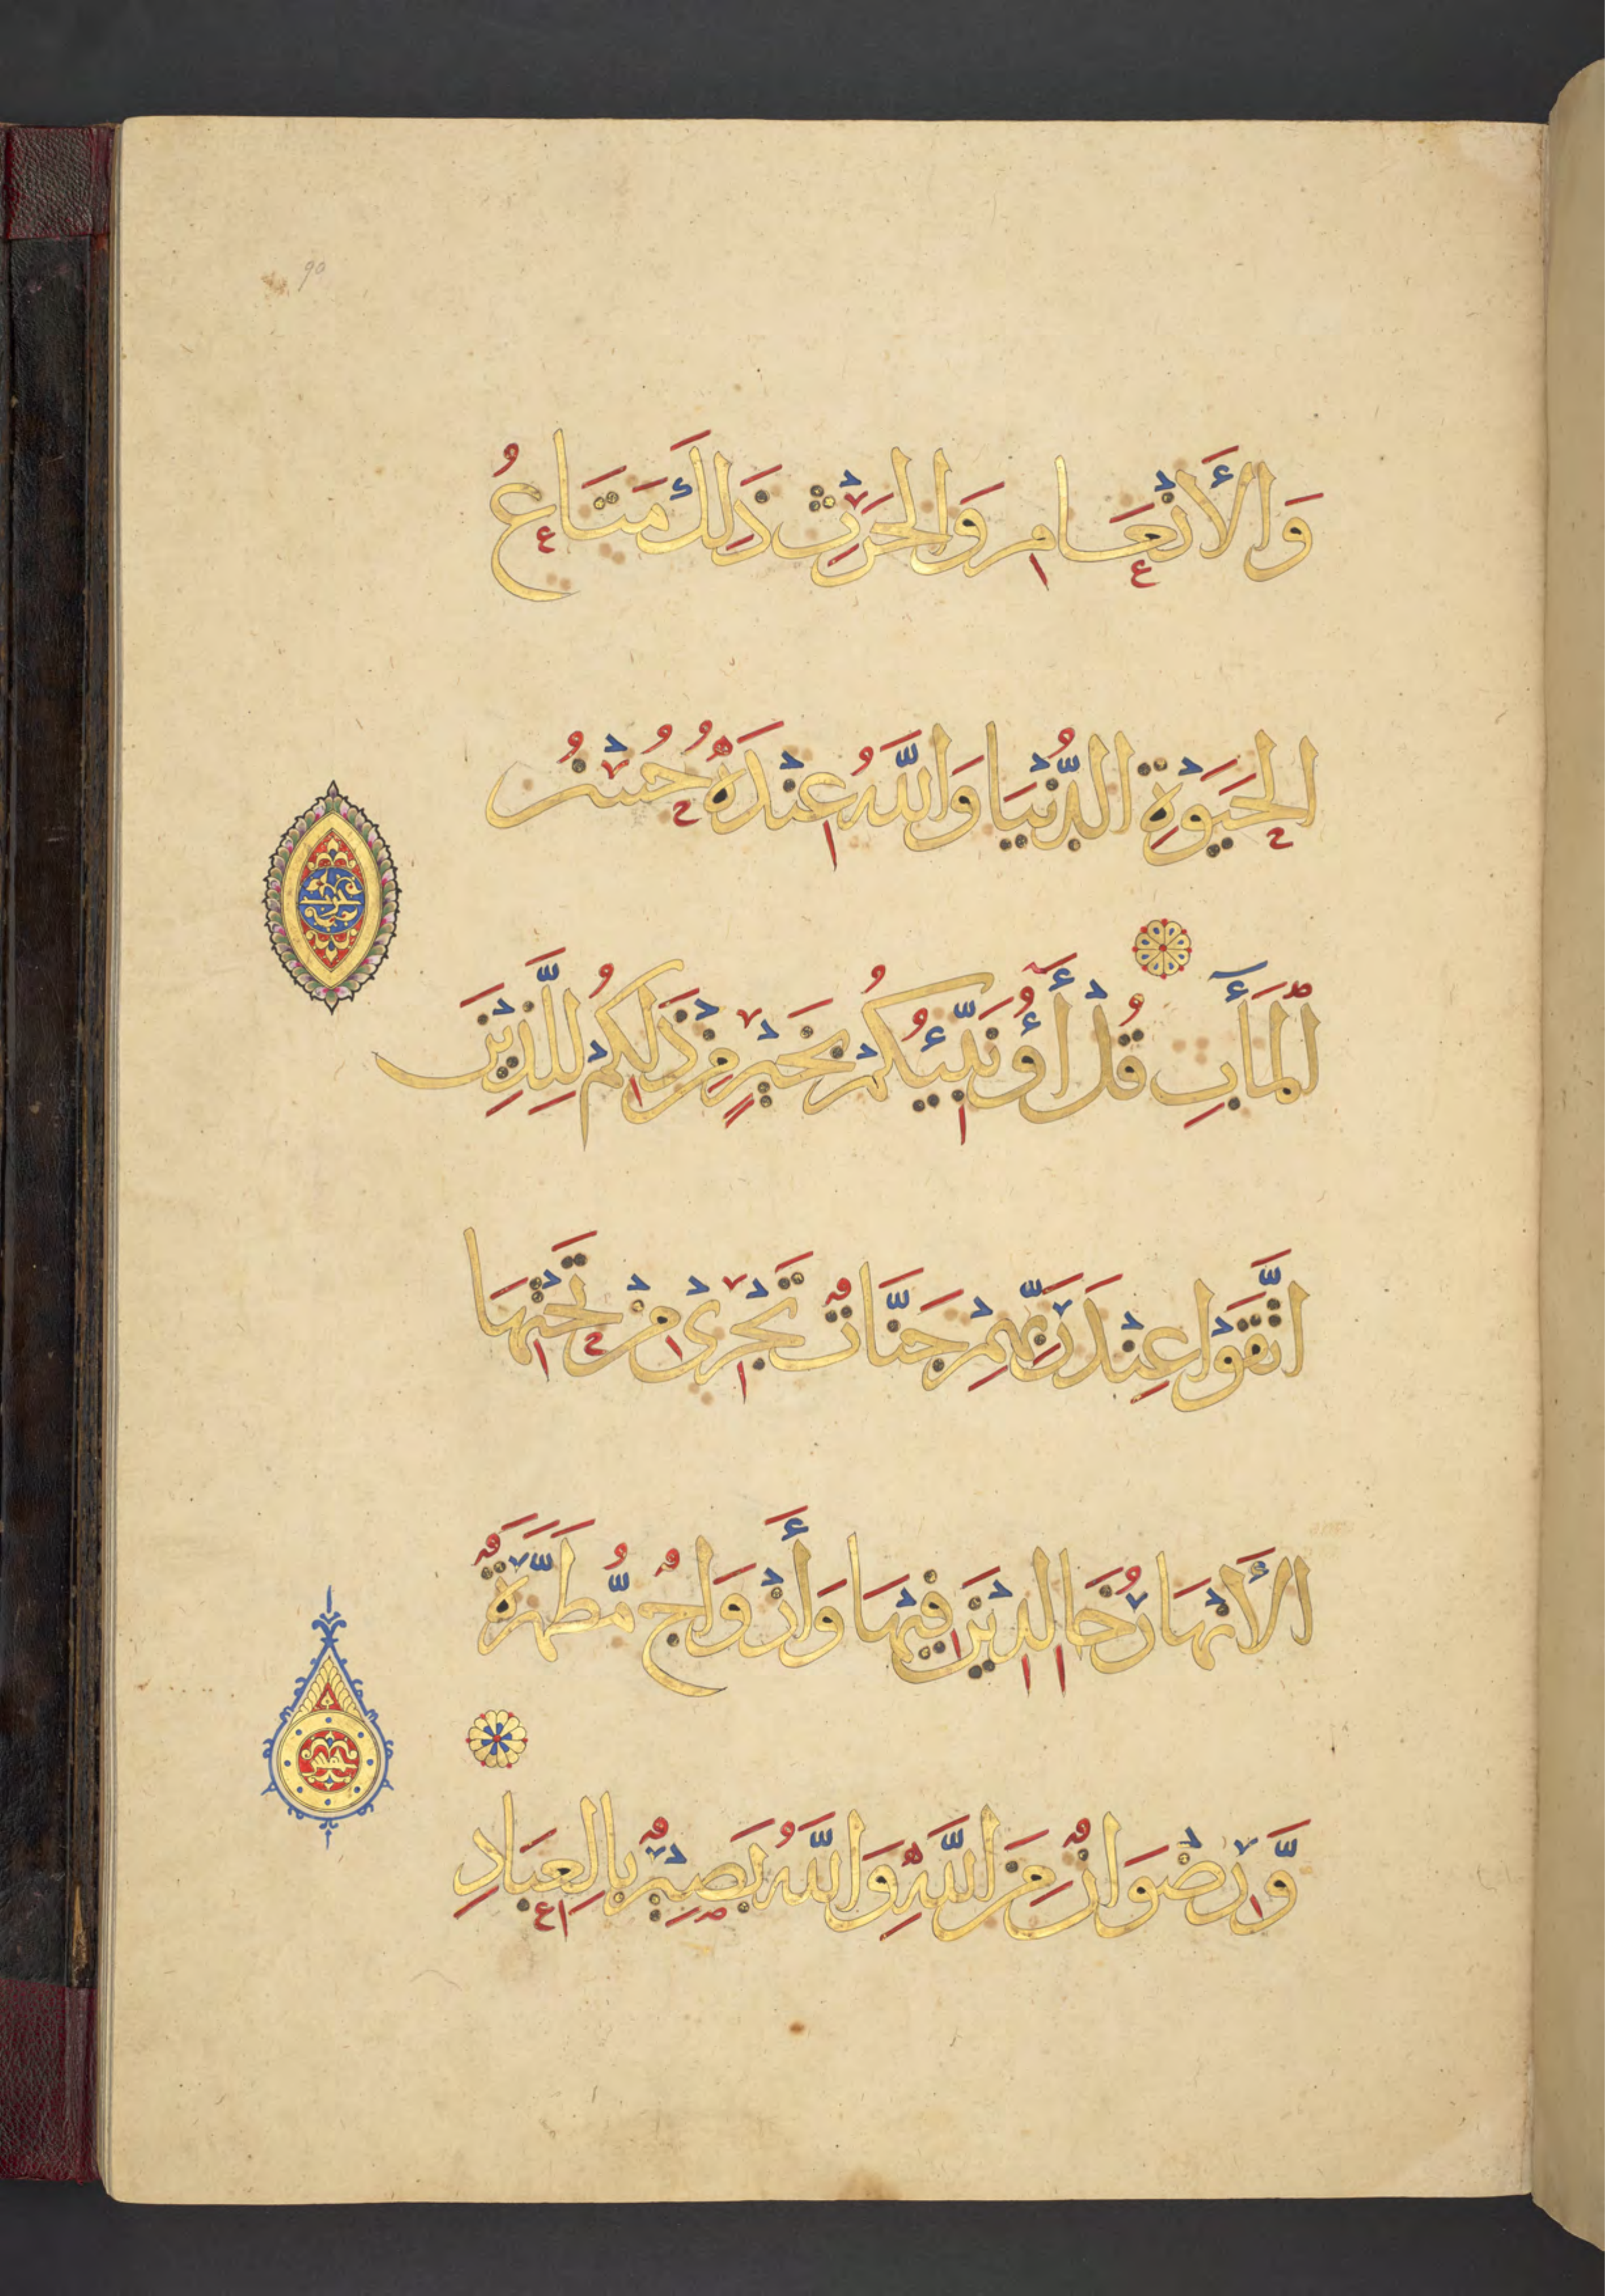 90
وَالأَنْعَامِ وَالحَرْثِ ذَلِكَ مَتَاعُ
الحَيَوةِ الدُّنْيَا وَاللَّهُ عِنْدَهُ حُسْنُ
المَآبِ قُلْ أَؤُنَبِّئُكُمْ بِخَيْرٍ مِنْ ذَلِكُمْ لِلَّذِينَ
اتَّقَوْا عِنْدَ رَبِّهِمْ جَنَّاتٌ تَجْرِي مِنْ تَحْتِهَا
الأَنْهَارُ خَالِدِينَ فِيهَا وَأَزْوَاجٌ مُّطَهَّرَةٌ
وَّرِضْوَانٌ مِنَ اللَّهِ وَاللَّهُ بَصِيرٌ بِالعِبَادِ